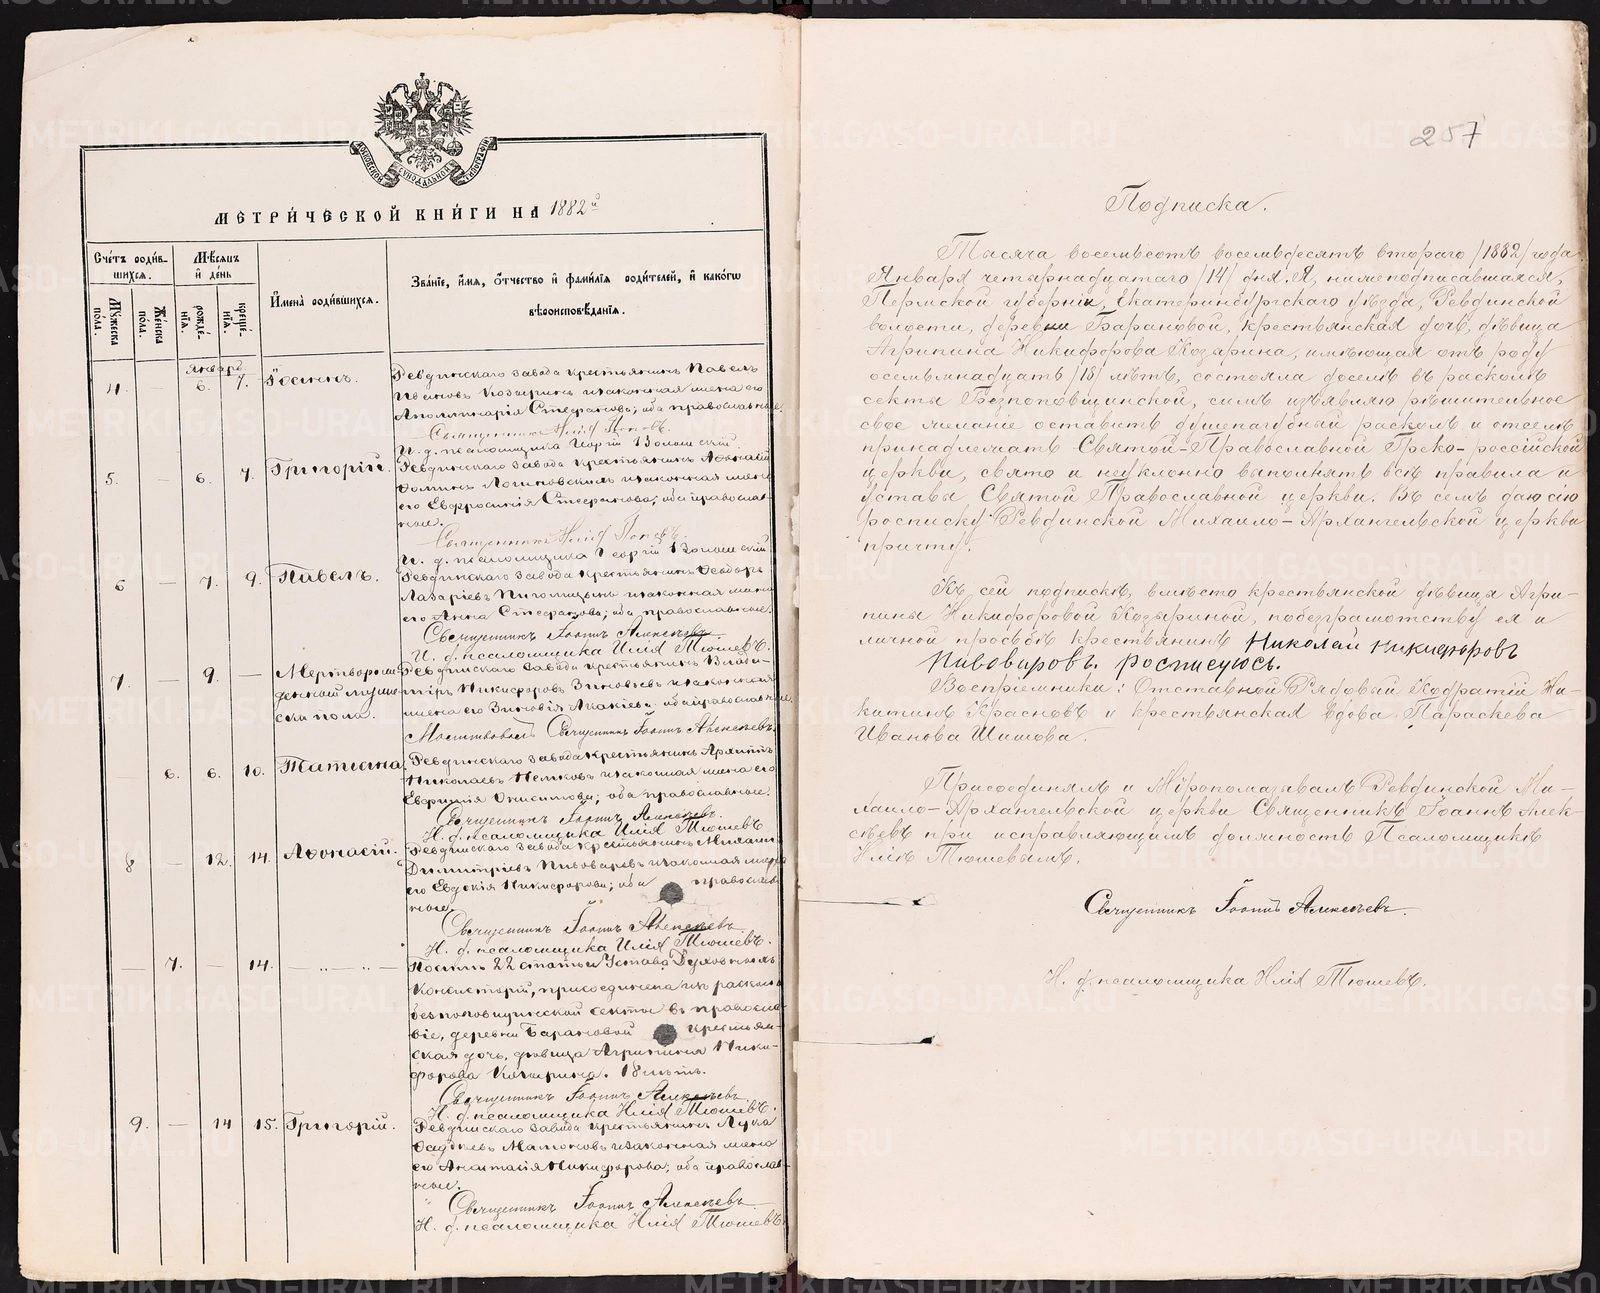 МОСКОВСКОЙ СѴНОДАЛЬНОЙ ТИПОГРАФІИ
МЕТРИЧЕСКОЙ КНИГИ НА 1882й
Счетъ родив-
шихся.
Мѣсяцъ
и день
Имена родившихся.
Званіе, имя, отчество и фамилія родителей, и какогѡ
вѣроисповѣданія.
Мужеска
пола.
Женска
пола.
рожде-
нія.
креще-
нія.
Январь
4. — 6. 7. Іоаннъ.
Ревдинскаго завода крестьянинъ Павелъ
Ивановъ Козыринъ и законная жена его
Аполлинарія Стефанова; оба православные.
Священникъ Илія Поповъ.
И. д. псаломщика Георгій
5. — 6. 7. Григорій.
Ревдинскаго завода крестьянинъ
и законная жена
его Евфросинія Стефанова; оба православ-
ные.
Священникъ Илія Поповъ.
И. д. псаломщика Георгій
6 — 7. 9. Павелъ.
Ревдинскаго завода крестьянинъ Ѳеодоръ
Лазаревъ и законная жена
его Анна Стефанова; оба православные.
Священникъ Іоаннъ Алексѣевъ.
И. д. псаломщика Илія Тюшевъ.
7. — 9. — Мертворож-
денный муже-
ска пола.
Ревдинскаго завода крестьянинъ Влади-
міръ Никифоровъ Зиновьевъ и законная
жена его Зиновія Акакіева; оба православные.
Молитвовалъ Священникъ Іоаннъ Алексѣевъ.
— 6. 6. 10. Татіана.
Ревдинскаго завода крестьянинъ Архиппъ
Николаевъ и законная жена его
Евфимія Онисимова; оба православные.
Священникъ Іоаннъ Алексѣевъ.
И. д. псаломщика Илія Тюшевъ
8 — 12. 14. Аѳонасій.
Ревдинскаго завода крестьянинъ Михаилъ
Димитріевъ Пивоваровъ и законная жена
его Евдокія Никифорова; оба православ-
ные.
Священникъ Іоаннъ Алексѣевъ.
И. д. псаломщика Илія Тюшевъ.
— 7. — 14. — „ — „ —
По силѣ 22 статьи Устава Духовныхъ
Консисторій, присоединена изъ раскола
безпоповщинской секты въ правосла-
віе, деревни Барановой крестьян-
ская дочь, дѣвица Агрипина Ники-
форова Козырина. 18 лѣтъ.
Священникъ Іоаннъ Алексѣевъ
И. д. псаломщика Илія Тюшевъ.
9. — 14 15. Григорій.
Ревдинскаго завода крестьянинъ Лука
Мамоновъ и законная жена
его Анастасія Никифорова; оба православ-
ные.
Священникъ Іоаннъ Алексѣевъ
И. д. псаломщика Илія Тюшевъ
257
Подписка.
Тысяча восемьсотъ восемьдесятъ втораго /1882/ года
Января четырнадцатаго /14/ дня. Я, нижеподписавшаяся,
Пермской губерніи, Екатеринбургскаго уѣзда, Ревдинской
волости, деревни Барановой, крестьянская дочь, дѣвица
Агрипина Никифорова Козырина, имѣющая отъ роду
осемьнадцать /18/ лѣтъ, состояла доселѣ въ расколѣ
секты Безпоповщинской, симъ изъявляю рѣшительное
свое желаніе оставить душепагубный расколъ и отселѣ
принадлежать Святой-Православной Греко-россійской
церкви, свято и неуклонно выполнять всѣ правила и
уставы Святой Православной церкви. Въ семъ даю сію
росписку Ревдинской Михаило-Архангельской церкви
причту.
Къ сей подпискѣ, вмѣсто крестьянской дѣвицы Агри-
пины Никифоровой Козыриной, по безграмотству ея и
личной просьбѣ крестьянинъ Николай Никифоровъ
Пивоваровъ. росписуюсь.
Воспріемники: Отставной Рядовый Кодратій Ни-
китинъ Красновъ и крестьянская вдова Параскева
Иванова Шишова.
Присоединялъ и Мѵропомазывалъ Ревдинской Ми-
хаило-Архангельской церкви Священникъ Іоаннъ Алек-
сѣевъ при исправляющимъ должность Псаломщикѣ
Иліѣ Тюшевымъ.
Священникъ Іоаннъ Алексѣевъ.
И. д. псаломщика Илія Тюшевъ.
METRIKI.GASO-URAL.RU